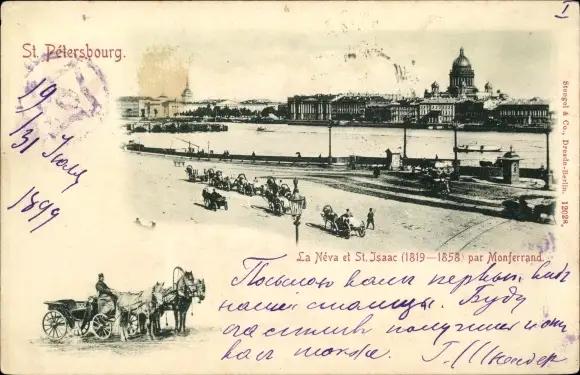 I
St. Pétersbourg.
19/31 Юля
1899
Stengel & Co., Dresden-Berlin. 12028.
La Néva et St. Isaac (1819—1858) par Monferrand.
Посылаю вамъ первый видъ
нашей столицы. Буду
счастливъ получить и отъ
васъ тоже.